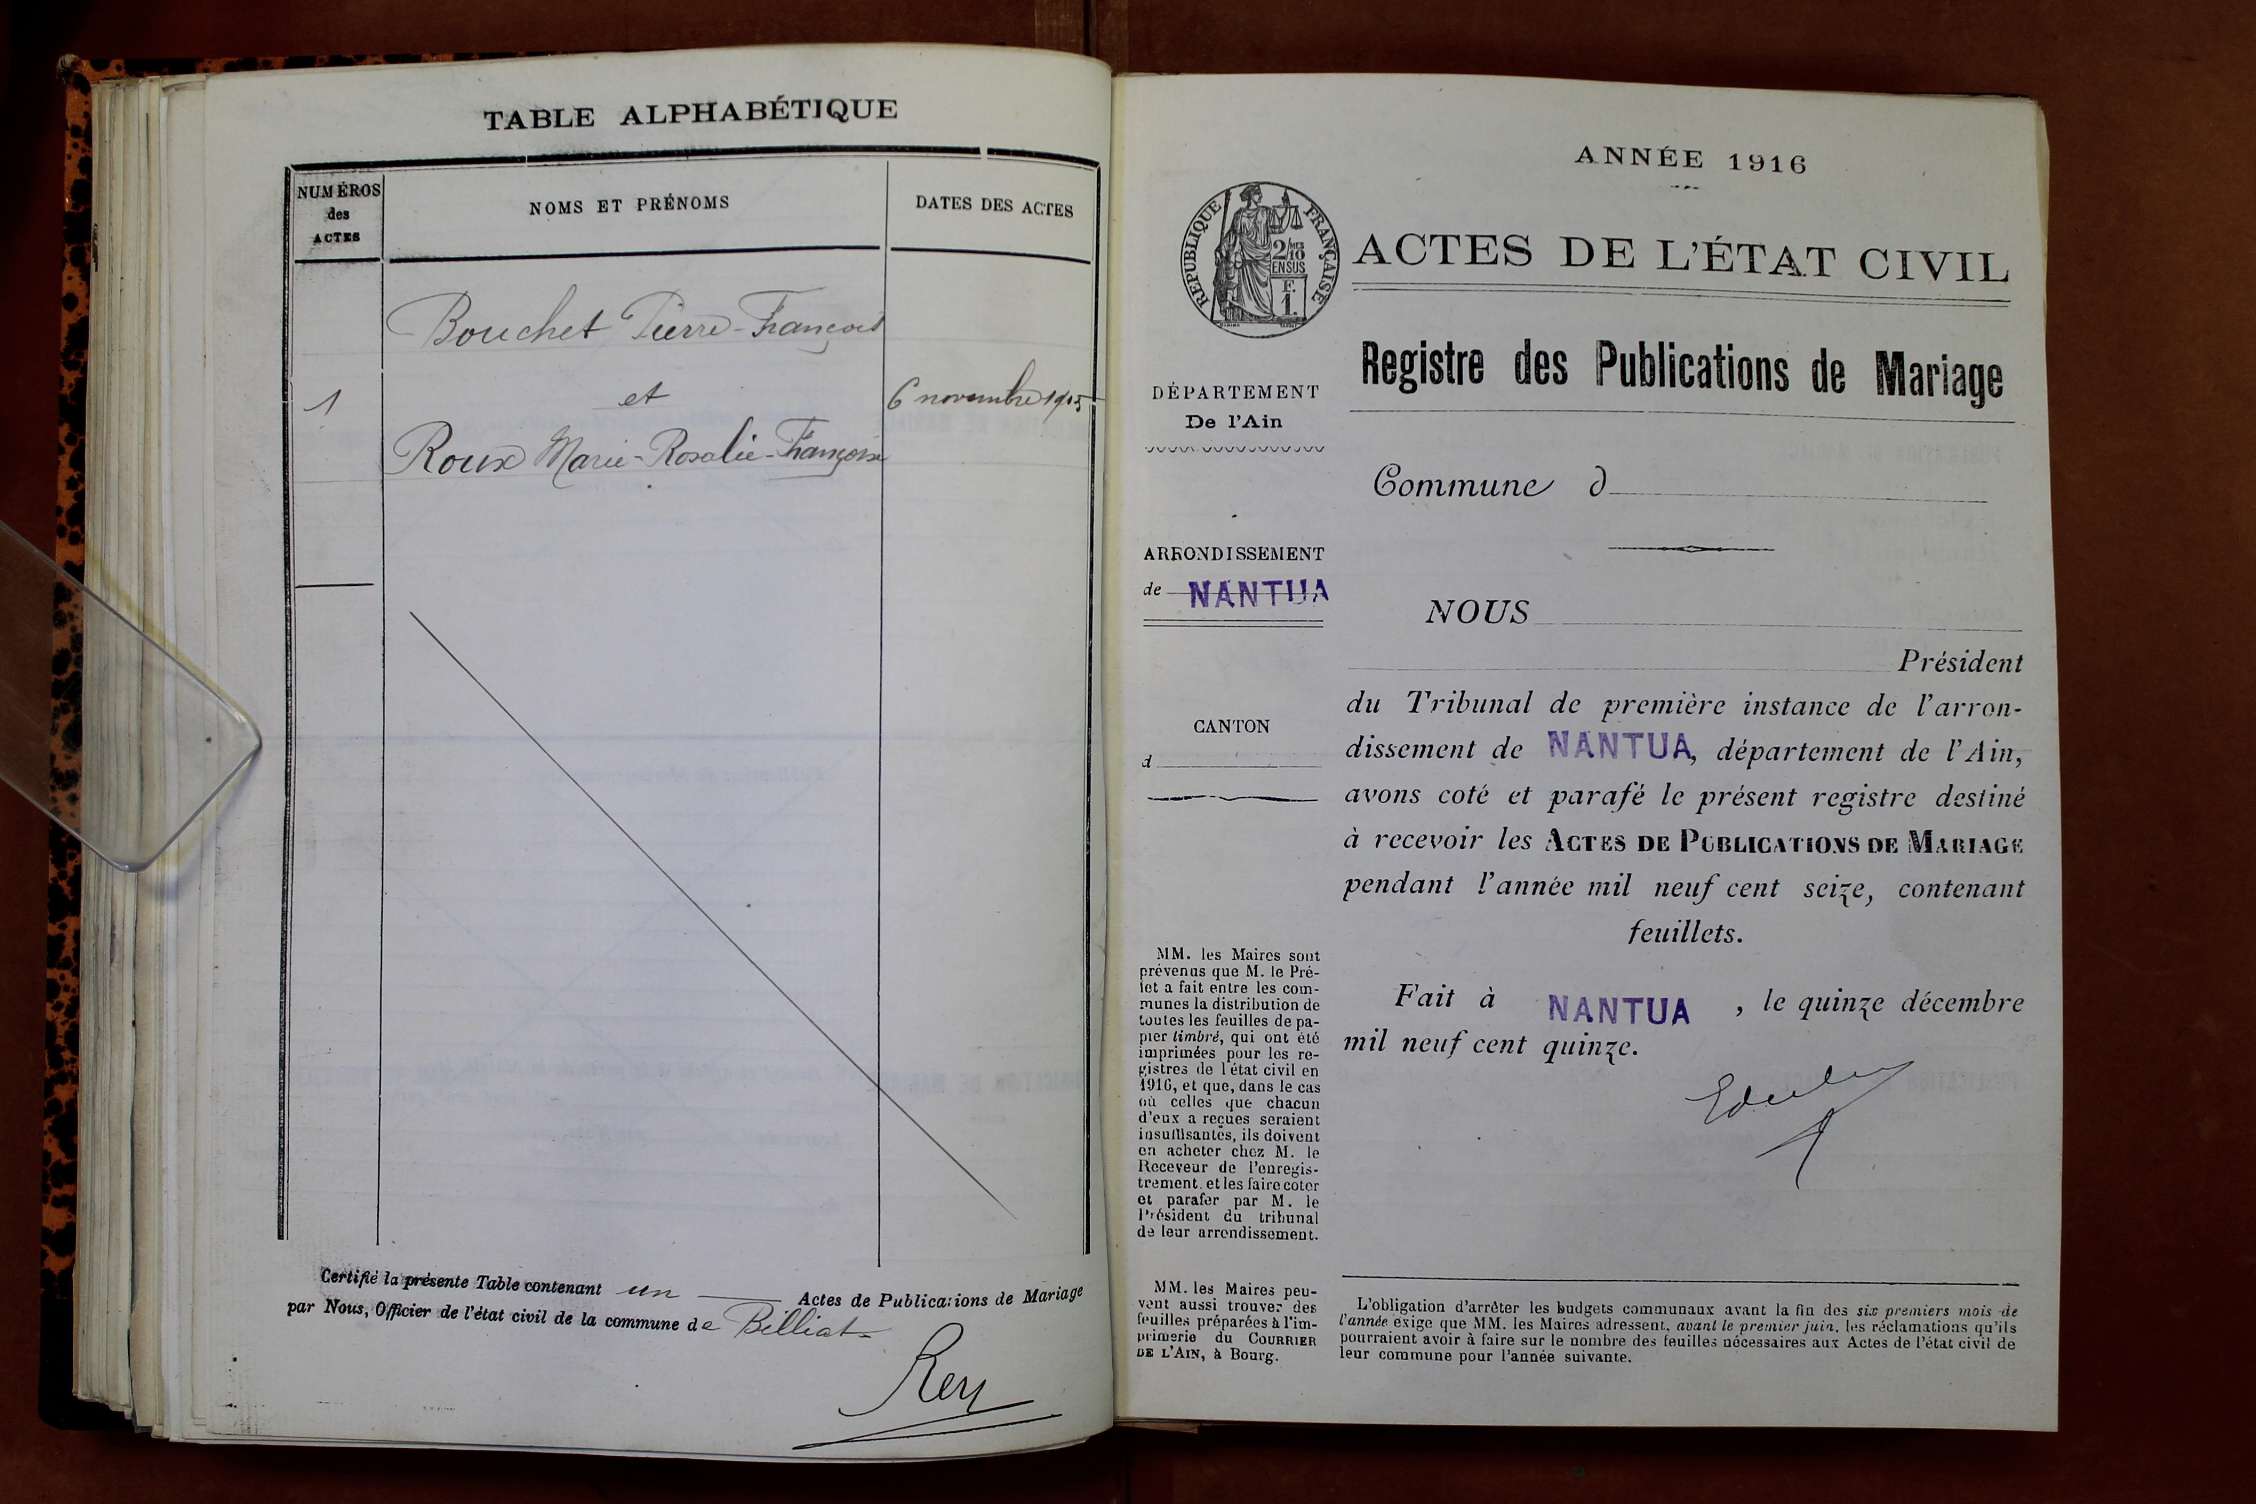 TABLE ALPHABÉTIQUE
NUMÉROS
des
ACTES
NOMS ET PRÉNOMS
DATES DES ACTES
Bouchet Pierre-François
1
et
6 novembre 1915
Roux Marie-Rosalie-Françoise
Certifié la présente Table contenant un Actes de Publications de Mariage
par Nous, Officier de l'état civil de la commune de Billiat
Rey
ANNÉE 1916
RÉPUBLIQUE FRANÇAISE
2/10
EN SUS
F.
1.
ACTES DE L'ÉTAT CIVIL
Registre des Publications de Mariage
DÉPARTEMENT
De l'Ain
Commune d
ARRONDISSEMENT
de NANTUA
CANTON
d
NOUS
Président
du Tribunal de première instance de l'arron-
dissement de NANTUA, département de l'Ain,
avons coté et parafé le présent registre destiné
à recevoir les ACTES DE PUBLICATIONS DE MARIAGE
pendant l'année mil neuf cent seize, contenant
feuillets.
Fait à NANTUA, le quinze décembre
mil neuf cent quinze.
MM. les Maires sont
prévenus que M. le Pré-
fet a fait entre les com-
munes la distribution de
toutes les feuilles de pa-
pier timbré, qui ont été
imprimées pour les re-
gistres de l'état civil en
1916, et que, dans le cas
où celles que chacun
d'eux a reçues seraient
insuffisantes, ils doivent
en acheter chez M. le
Receveur de l'enregis-
trement, et les faire coter
et parafer par M. le
Président du tribunal
de leur arrondissement.
MM. les Maires peu-
vent aussi trouver des
feuilles préparées à l'im-
primerie du COURRIER
DE L'AIN, à Bourg.
L'obligation d'arrêter les budgets communaux avant la fin des six premiers mois de
l'année exige que MM. les Maires adressent, avant le premier juin, les réclamations qu'ils
pourraient avoir à faire sur le nombre des feuilles nécessaires aux Actes de l'état civil de
leur commune pour l'année suivante.